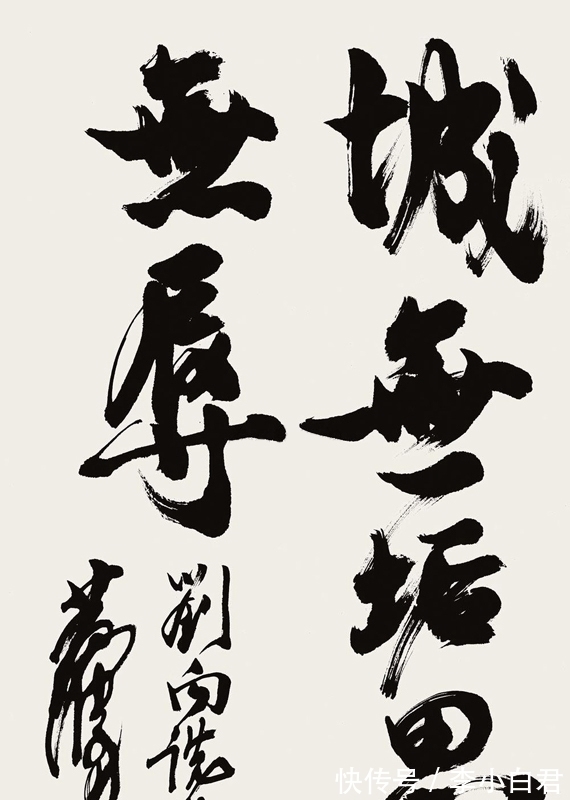 城無垢思
無辱
劉向說
快传号 / 李小白君